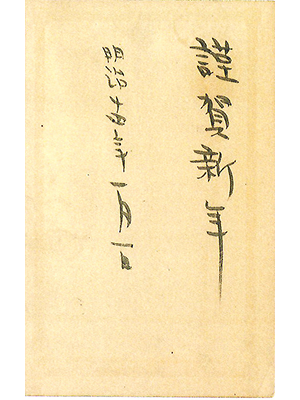 謹賀新年
明治十四年一月一日